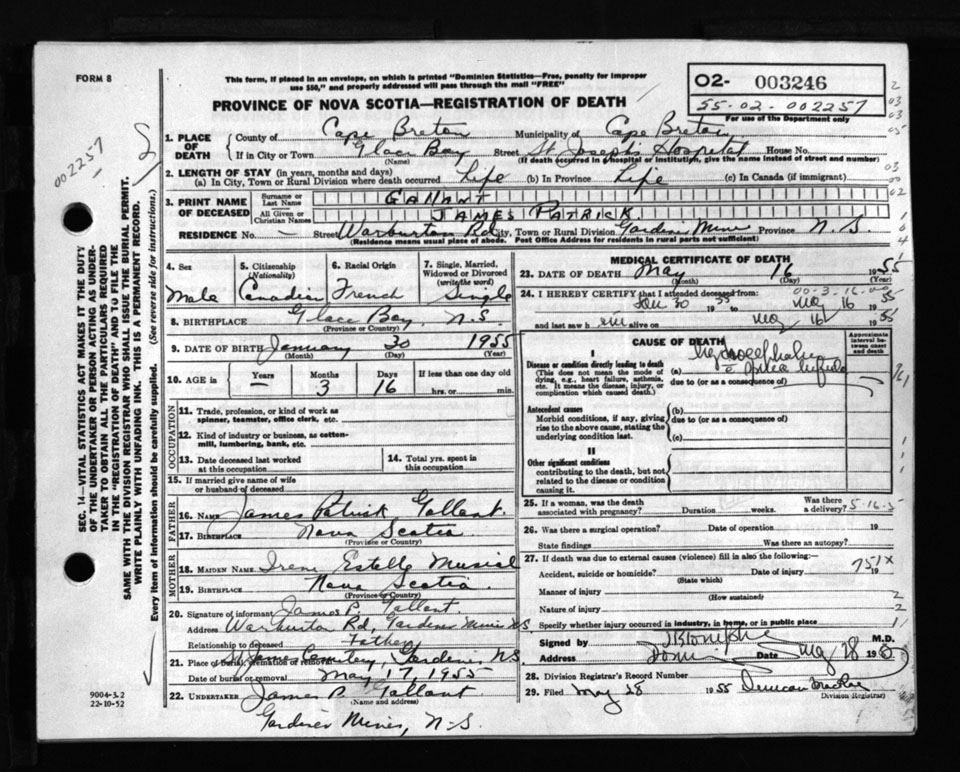 FORM 8
This form, if placed in an envelope, on which is printed "Dominion Statistics—Free, penalty for improper
use $50," and properly addressed will pass through the mail "FREE"
PROVINCE OF NOVA SCOTIA—REGISTRATION OF DEATH
O2- 003246
55-02-002257
For use of the Department only
002257
SEC. 14—VITAL STATISTICS ACT MAKES IT THE DUTY
OF THE UNDERTAKER OR PERSON ACTING AS UNDER-
TAKER TO OBTAIN ALL THE PARTICULARS REQUIRED
IN THE "REGISTRATION OF DEATH" AND TO FILE THE
SAME WITH THE DIVISION REGISTRAR WHO SHALL ISSUE THE BURIAL PERMIT.
WRITE PLAINLY WITH UNFADING INK. THIS IS A PERMANENT RECORD.
Every item of information should be carefully supplied. (See reverse side for instructions.)
1. PLACE OF DEATH County of Cape Breton Municipality of Cape Breton
If in City or Town Glace Bay Street St. Joseph's Hospital House No.
(Name) (If death occurred in a hospital or institution, give the name instead of street and number)
2. LENGTH OF STAY (in years, months and days)
(a) In City, Town or Rural Division where death occurred Life (b) In Province Life (c) In Canada (if immigrant)
3. PRINT NAME OF DECEASED Surname or Last Name GALLANT
All Given or Christian Names JAMES PATRICK
RESIDENCE No. — Street Warburton Rd City, Town or Rural Division Gardiner Mine Province N.S.
(Residence means usual place of abode. Post Office Address for residents in rural parts not sufficient)
4. Sex 5. Citizenship (Nationality) 6. Racial Origin 7. Single, Married, Widowed or Divorced (write the word)
Male Canadian French Single
8. BIRTHPLACE Glace Bay, N.S.
(Province or Country)
9. DATE OF BIRTH January 30 1955
(Month) (Day) (Year)
10. AGE in Years Months Days If less than one day old
— 3 16 hrs. or min.
OCCUPATION
11. Trade, profession, or kind of work as
spinner, teamster, office clerk, etc.
12. Kind of industry or business, as cotton-
mill, lumbering, bank, etc.
13. Date deceased last worked
at this occupation
14. Total yrs. spent in
this occupation
15. If married give name of wife
or husband of deceased
FATHER
16. NAME James Patrick Gallant
17. BIRTHPLACE Nova Scotia
(Province or Country)
MOTHER
18. MAIDEN NAME Irene Estelle Musial
19. BIRTHPLACE Nova Scotia
(Province or Country)
20. Signature of informant James P. Gallant
Address Warburton Rd, Gardiner Mines NS
Relationship to deceased Father
21. Place of burial, cremation or removal Cemetery, Gardiner NS
Date of burial or removal May 17, 1955
22. UNDERTAKER James P Gallant
(Name and address)
Gardiner Mines, N-S.
9004-3.2
22-10-52
MEDICAL CERTIFICATE OF DEATH
23. DATE OF DEATH May 16 1955
(Month) (Day) (Year)
24. I HEREBY CERTIFY that I attended deceased from: 00-3-16
Jan 30 1955 to May 16 1955
and last saw h im alive on May 16 1955
CAUSE OF DEATH
Approximate interval between onset and death
I
Disease or condition directly leading to death
(This does not mean the mode of dying, e.g., heart failure, asthenia, etc. It means the disease, injury, or complication which caused death.)
(a) Hydrocephalus
c spina bifida
due to (or as a consequence of)
Antecedent causes
Morbid conditions, if any, giving rise to the above cause, stating the underlying condition last.
(b)
due to (or as a consequence of)
(c)
II
Other significant conditions
contributing to the death, but not related to the disease or condition causing it.
25. If a woman, was the death associated with pregnancy? Duration weeks. Was there a delivery? 5-16-5
26. Was there a surgical operation? Date of operation 19
State findings Was there an autopsy?
27. If death was due to external causes (violence) fill in also the following:
Accident, suicide or homicide? Date of injury 19 751X
(State which)
Manner of injury
(How sustained)
Nature of injury
Specify whether injury occurred in industry, in home, or in public place
Signed by M.D.
Address Domin Date May 28 195
28. Division Registrar's Record Number
29. Filed May 28 1955 Duncan
(Division Registrar)